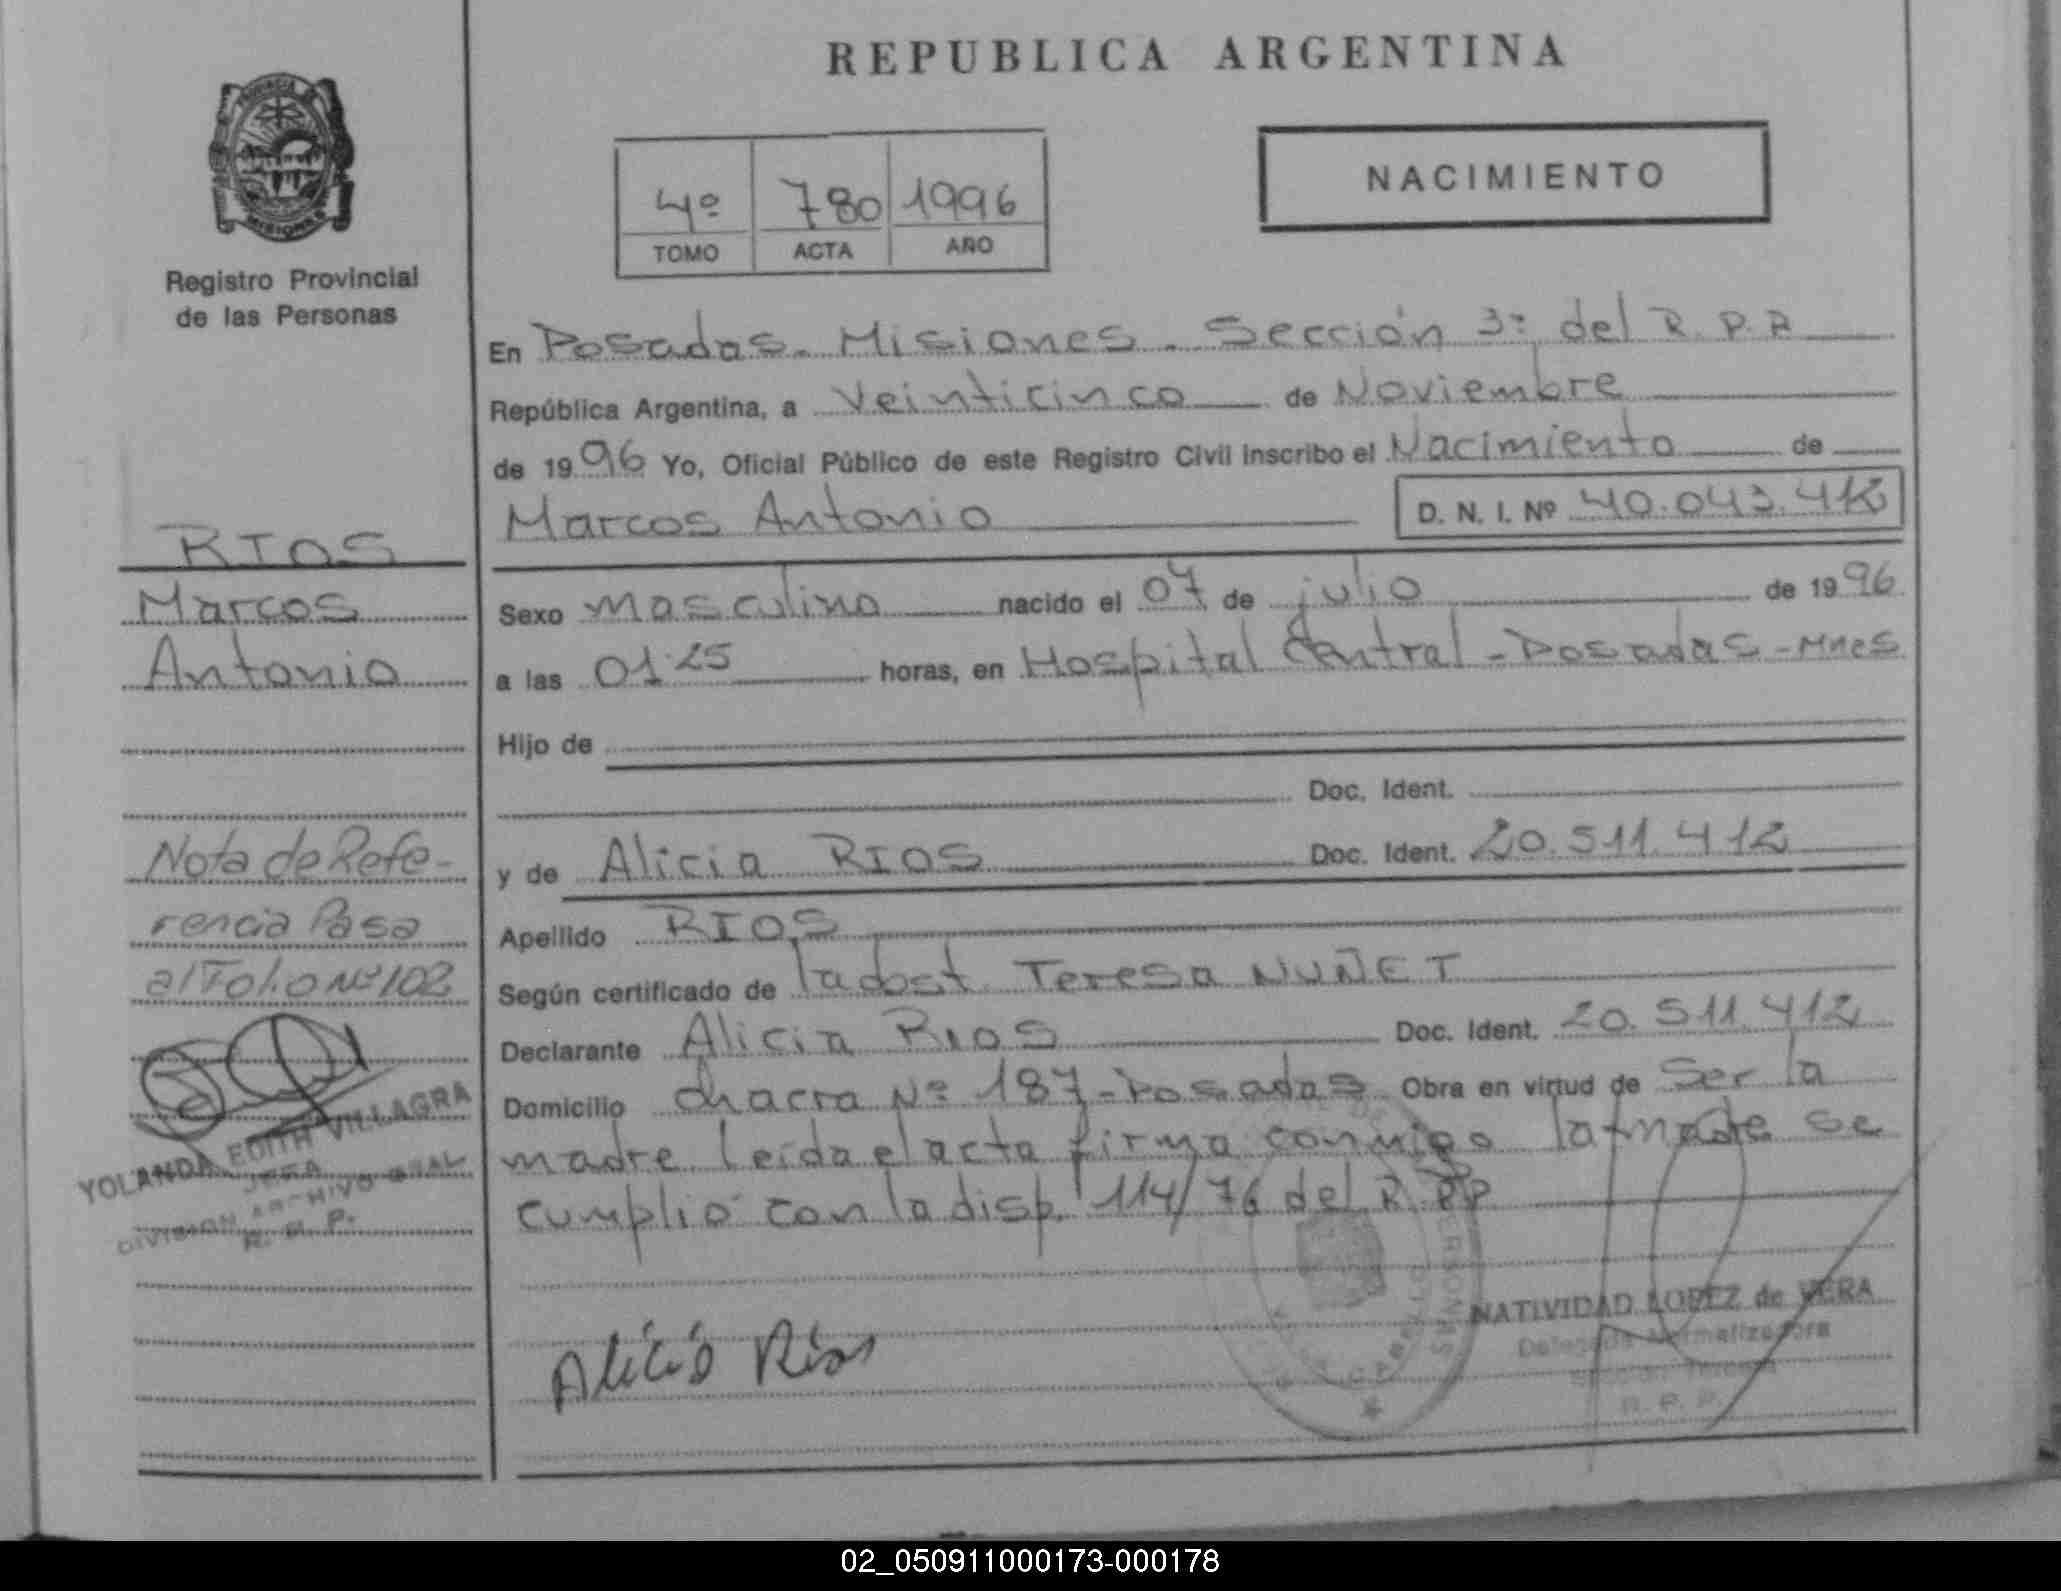 REPUBLICA ARGENTINA
PROVINCIA DE
MISIONES
Registro Provincial
de las Personas
4º 780 1996
TOMO ACTA AÑO
NACIMIENTO
En Posadas. Misiones. Sección 3: del R.P.P
República Argentina, a Veinticinco de Noviembre
de 1996 Yo, Oficial Público de este Registro Civil inscribo el Nacimiento de
Marcos Antonio D. N. I. Nº 40.043.412
Sexo masculino nacido el 07 de julio de 1996.
a las 01:25 horas, en Hospital Central - Posadas - Mnes
Hijo de
Doc. Ident.
y de Alicia RIOS Doc. Ident. 20.511.412
Apellido RIOS
Según certificado de la obst. Teresa NUÑET
Declarante Alicia RIOS Doc. Ident. 20.511.412
Domicilio chacra Nº 187 - Posadas Obra en virtud de Ser la
madre leída el acta firma conmigo la madre se
cumplió con la disp. 114/76 del R.P.P
Alicia Rios
NATIVIDAD LOPEZ de VERA
Delegada Normalizadora
Sección Tercera
R. P. P.
RIOS
Marcos
Antonio
Nota de Refe-
rencia Pasa
al Folio Nº 102
YOLANDA EDITH VILLAGRA
JEFA
DIVISION ARCHIVO GRAL
R. P. P.
02_050911000173-000178